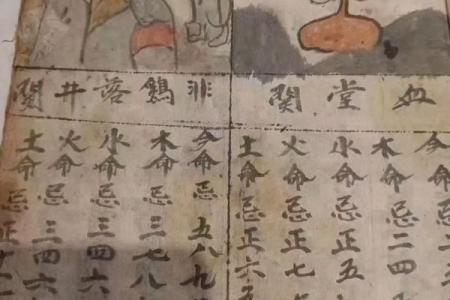 血堂関
今命忌
木命忌二四
水命忌正五
火命忌正七
土命忌正六
非鷄落井関
今命忌五八九
木命忌三七八
水命忌三四六
火命忌三四六
土命忌正十二